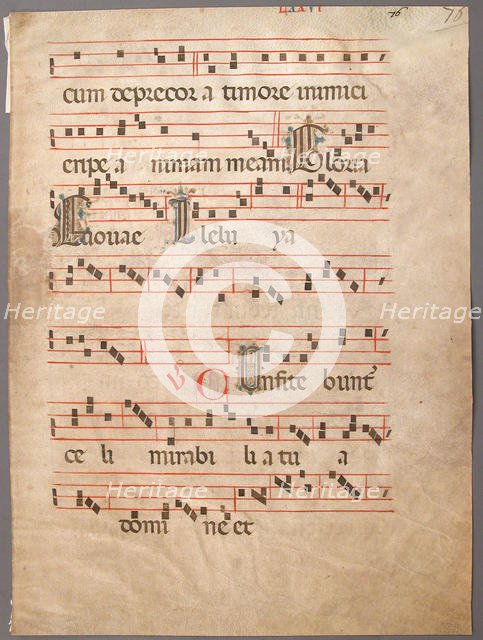 LXXVI 76 76
cum deprecor a timore inimici
eripe a nimam meam Gloria
Euovae Alelu ya
V Confite bunt
ce li mirabi li a tu a
domi ne et
Heritage Heritage
Heritage Heritage
Heritage Heritage
Heritage Heritage
©